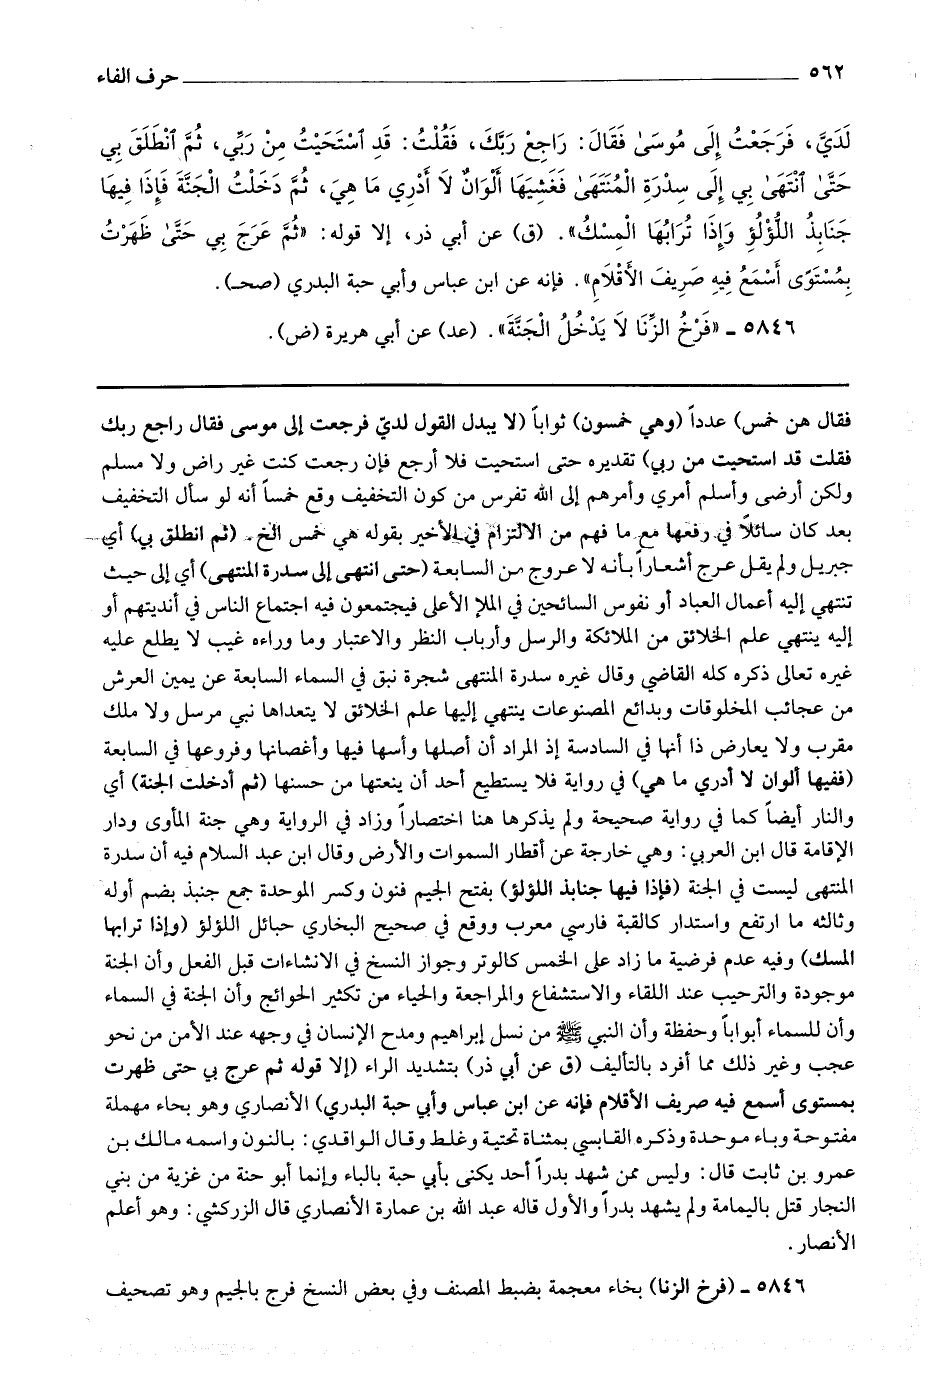 ٥٦٢ حرف الفاء
لَدَيَّ، فَرَجَعْتُ إِلَى مُوسَىٰ فَقَالَ: رَاجِعْ رَبَّكَ، فَقُلْتُ: قَدِ ٱسْتَحَيْتُ مِنْ رَبِّي، ثُمَّ ٱنْطَلَقَ بِي
حَتَّىٰ ٱنْتَهَىٰ بِي إِلَى سِدْرَةِ الْمُنْتَهَىٰ فَغَشِيَهَا أَلْوَانٌ لَا أَدْرِي مَا هِيَ، ثُمَّ دَخَلْتُ الْجَنَّةَ فَإِذَا فِيهَا
جَنَابِذُ اللُّؤْلُؤِ وَإِذَا تُرَابُهَا الْمِسْكُ». (ق) عن أبي ذر، إلا قوله: «ثُمَّ عَرَجَ بِي حَتَّىٰ ظَهَرْتُ
بِمُسْتَوًى أَسْمَعُ فِيهِ صَرِيفَ الأَقْلَامِ». فإنه عن ابن عباس وأبي حبة البدري (صحـ).
٥٨٤٦ ـ «فَرْخُ الزِّنَا لَا يَدْخُلُ الْجَنَّةَ». (عد) عن أبي هريرة (ض).
فقال هن خمس) عدداً (وهي خمسون) ثواباً (لا يبدل القول لديّ فرجعت إلى موسى فقال راجع ربك
فقلت قد استحيت من ربي) تقديره حتى استحيت فلا أرجع فإن رجعت كنت غير راض ولا مسلم
ولكن أرضى وأسلم أمري وأمرهم إلى الله تفرس من كون التخفيف وقع خمساً أنه لو سأل التخفيف
بعد كان سائلاً في رفعها مع ما فهم من الالتزام في الأخير بقوله هي خمس الخ. (ثم انطلق بي) أي
جبريل ولم يقل عرج أشعاراً بأنه لا عروج من السابعة (حتى انتهى إلى سدرة المنتهى) أي إلى حيث
تنتهي إليه أعمال العباد أو نفوس السائحين في الملإ الأعلى فيجتمعون فيه اجتماع الناس في أنديتهم أو
إليه ينتهي علم الخلائق من الملائكة والرسل وأرباب النظر والاعتبار وما وراءه غيب لا يطلع عليه
غيره تعالى ذكره كله القاضي وقال غيره سدرة المنتهى شجرة نبق في السماء السابعة عن يمين العرش
من عجائب المخلوقات وبدائع المصنوعات ينتهي إليها علم الخلائق لا يتعداها نبي مرسل ولا ملك
مقرب ولا يعارض ذا أنها في السادسة إذ المراد أن أصلها وأسها فيها وأغصانها وفروعها في السابعة
(ففيها ألوان لا أدري ما هي) في رواية فلا يستطيع أحد أن ينعتها من حسنها (ثم أدخلت الجنة) أي
والنار أيضاً كما في رواية صحيحة ولم يذكرها هنا اختصاراً وزاد في الرواية وهي جنة المأوى ودار
الإقامة قال ابن العربي: وهي خارجة عن أقطار السموات والأرض وقال ابن عبد السلام فيه أن سدرة
المنتهى ليست في الجنة (فإذا فيها جنابذ اللؤلؤ) بفتح الجيم فنون وكسر الموحدة جمع جنبذ بضم أوله
وثالثه ما ارتفع واستدار كالقبة فارسي معرب ووقع في صحيح البخاري حبائل اللؤلؤ (وإذا ترابها
المسك) وفيه عدم فرضية ما زاد على الخمس كالوتر وجواز النسخ في الانشاءات قبل الفعل وأن الجنة
موجودة والترحيب عند اللقاء والاستشفاع والمراجعة والحياء من تكثير الحوائج وأن الجنة في السماء
وأن للسماء أبواباً وحفظة وأن النبي ﷺ من نسل إبراهيم ومدح الإنسان في وجهه عند الأمن من نحو
عجب وغير ذلك مما أفرد بالتأليف (ق عن أبي ذر) بتشديد الراء (إلا قوله ثم عرج بي حتى ظهرت
بمستوى أسمع فيه صريف الأقلام فإنه عن ابن عباس وأبي حبة البدري) الأنصاري وهو بحاء مهملة
مفتوحة وباء موحدة وذكره القابسي بمثناة تحتية وغلط وقال الواقدي: بالنون واسمه مالك بن
عمرو بن ثابت قال: وليس ممن شهد بدراً أحد يكنى بأبي حبة بالباء وإنما أبو حنة من غزية من بني
النجار قتل باليمامة ولم يشهد بدراً والأول قاله عبد الله بن عمارة الأنصاري قال الزركشي: وهو أعلم
الأنصار.
٥٨٤٦ ـ (فرخ الزنا) بخاء معجمة بضبط المصنف وفي بعض النسخ فرج بالجيم وهو تصحيف